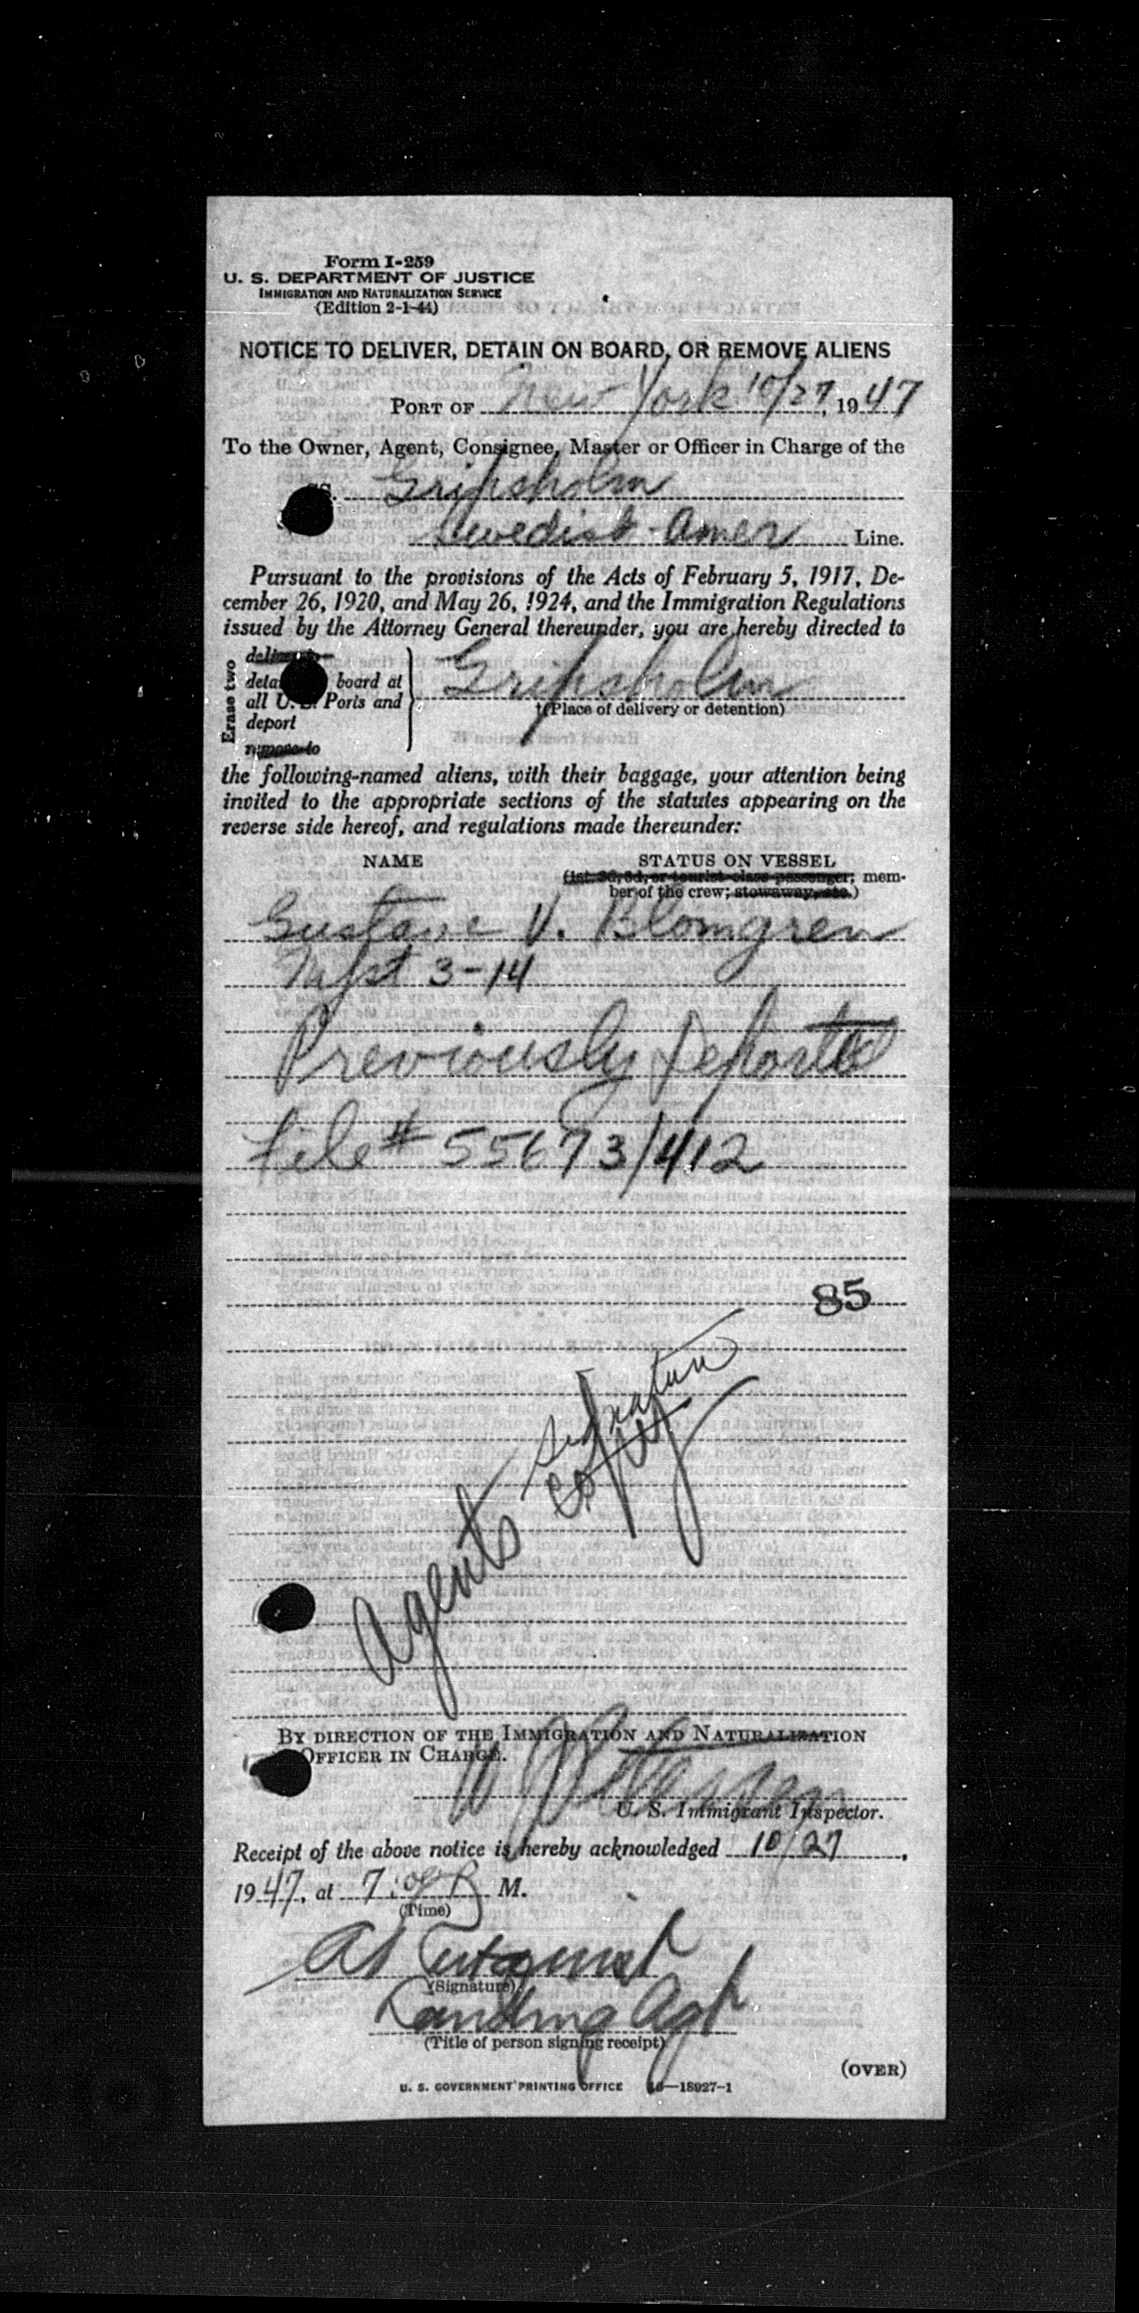 Form I-259
U. S. DEPARTMENT OF JUSTICE
IMMIGRATION AND NATURALIZATION SERVICE
(Edition 2-1-44)
NOTICE TO DELIVER, DETAIN ON BOARD, OR REMOVE ALIENS
PORT OF New York 10/27, 1947
To the Owner, Agent, Consignee, Master or Officer in Charge of the
SS. Gripsholm
Swedish Amer Line.
Pursuant to the provisions of the Acts of February 5, 1917, De-
cember 26, 1920, and May 26, 1924, and the Immigration Regulations
issued by the Attorney General thereunder, you are hereby directed to
Erase two
deliver to
deta board at
all U. S. Ports and
deport
remove to
Gripsholm
†(Place of delivery or detention)
the following-named aliens, with their baggage, your attention being
invited to the appropriate sections of the statutes appearing on the
reverse side hereof, and regulations made thereunder:
NAME STATUS ON VESSEL
(1st, 2d, 3d, or tourist class passenger; mem-
ber of the crew; stowaway, etc.)
Gustave V. Blomgren
Mfst 3-14
Previously Deported
File # 55673/412
85
Agents copy
BY DIRECTION OF THE IMMIGRATION AND NATURALIZATION
OFFICER IN CHARGE.
U. S. Immigrant Inspector.
Receipt of the above notice is hereby acknowledged 10/27,
1947, at 7:00 P M.
(Time)
(Signature)
Landing Agt
(Title of person signing receipt)
(OVER)
U. S. GOVERNMENT PRINTING OFFICE 16—18927-1